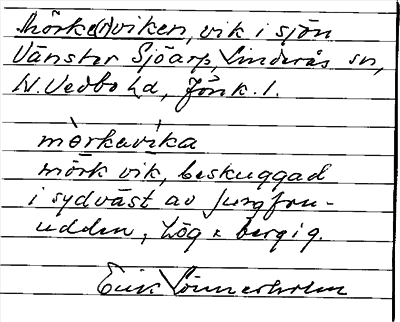 Mörke(n)viken, vik i sjön
Vänstor Sjöarp, Linderås sn,
N. Vedbo hd, Jönk. l.
mörkavika
mörk vik, beskuggad
i sydväst av Jungfru-
udden, hög & bergig.
Erik Sönnerholm